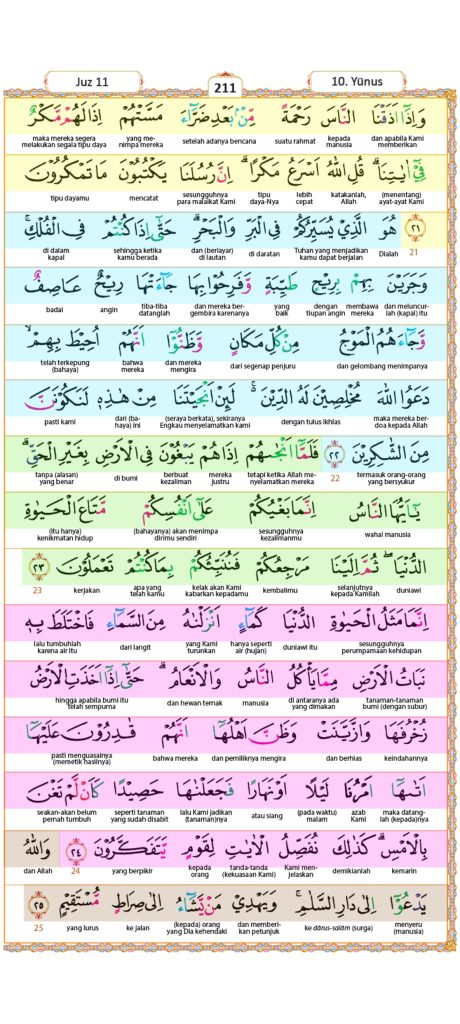 Juz 11
211
10. Yūnus
وَاِذَآ اَذَقْنَا النَّاسَ رَحْمَةً مِّنْۢ بَعْدِ ضَرَّاۤءَ مَسَّتْهُمْ اِذَا لَهُمْ مَّكْرٌ
dan apabila Kami memberikan kepada manusia suatu rahmat setelah adanya bencana yang me-nimpa mereka maka mereka segera melakukan segala tipu daya
فِيْٓ اٰيَاتِنَاۗ قُلِ اللّٰهُ اَسْرَعُ مَكْرًاۗ اِنَّ رُسُلَنَا يَكْتُبُوْنَ مَا تَمْكُرُوْنَ
(menentang) ayat-ayat Kami katakanlah, Allah lebih cepat tipu daya-Nya sesungguhnya para malaikat Kami mencatat tipu dayamu
٢١ هُوَ الَّذِيْ يُسَيِّرُكُمْ فِى الْبَرِّ وَالْبَحْرِۗ حَتّٰىٓ اِذَا كُنْتُمْ فِى الْفُلْكِۚ
21 Dialah Tuhan yang menjadikan kamu dapat berjalan di daratan dan (berlayar) di lautan sehingga ketika kamu berada di dalam kapal
وَجَرَيْنَ بِهِمْ بِرِيْحٍ طَيِّبَةٍ وَّفَرِحُوْا بِهَا جَاۤءَتْهَا رِيْحٌ عَاصِفٌ
dan meluncur-lah (kapal) itu membawa mereka dengan tiupan angin yang baik dan mereka ber-gembira karenanya tiba-tiba datanglah angin badai
وَّجَاۤءَهُمُ الْمَوْجُ مِنْ كُلِّ مَكَانٍ وَّظَنُّوْٓا اَنَّهُمْ اُحِيْطَ بِهِمْۙ
dan gelombang menimpanya dari segenap penjuru dan mereka mengira bahwa mereka telah terkepung (bahaya)
دَعَوُا اللّٰهَ مُخْلِصِيْنَ لَهُ الدِّيْنَ ۚ لَىِٕنْ اَنْجَيْتَنَا مِنْ هٰذِهٖ لَنَكُوْنَنَّ
maka mereka ber-doa kepada Allah dengan tulus ikhlas (seraya berkata), sekiranya Engkau menyelamatkan kami dari (ba-haya) ini pasti kami
مِنَ الشّٰكِرِيْنَ ٢٢ فَلَمَّآ اَنْجٰىهُمْ اِذَا هُمْ يَبْغُوْنَ فِى الْاَرْضِ بِغَيْرِ الْحَقِّۗ
termasuk orang-orang yang bersyukur 22 tetapi ketika Allah me-nyelamatkan mereka mereka justru berbuat kezaliman di bumi tanpa (alasan) yang benar
يٰٓاَيُّهَا النَّاسُ اِنَّمَا بَغْيُكُمْ عَلٰٓى اَنْفُسِكُمْ مَّتَاعَ الْحَيٰوةِ
wahai manusia sesungguhnya kezalimanmu (bahayanya) akan menimpa dirimu sendiri (itu hanya) kenikmatan hidup
الدُّنْيَاۖ ثُمَّ اِلَيْنَا مَرْجِعُكُمْ فَنُنَبِّئُكُمْ بِمَا كُنْتُمْ تَعْمَلُوْنَ ٢٣
duniawi selanjutnya kepada Kamilah kembalimu kelak akan Kami kabarkan kepadamu apa yang telah kamu kerjakan 23
اِنَّمَا مَثَلُ الْحَيٰوةِ الدُّنْيَا كَمَاۤءٍ اَنْزَلْنٰهُ مِنَ السَّمَاۤءِ فَاخْتَلَطَ بِهٖ
sesungguhnya perumpamaan kehidupan duniawi itu hanya seperti air (hujan) yang Kami turunkan dari langit lalu tumbuhlah karena air itu
نَبَاتُ الْاَرْضِ مِمَّا يَأْكُلُ النَّاسُ وَالْاَنْعَامُ ۗ حَتّٰٓى اِذَآ اَخَذَتِ الْاَرْضُ
tanaman-tanaman bumi (dengan subur) di antaranya ada yang dimakan manusia dan hewan ternak hingga apabila bumi itu telah sempurna
زُخْرُفَهَا وَازَّيَّنَتْ وَظَنَّ اَهْلُهَآ اَنَّهُمْ قٰدِرُوْنَ عَلَيْهَآ
keindahannya dan berhias dan pemiliknya mengira bahwa mereka pasti menguasainya (memetik hasilnya)
اَتٰىهَآ اَمْرُنَا لَيْلًا اَوْ نَهَارًا فَجَعَلْنٰهَا حَصِيْدًا كَاَنْ لَّمْ تَغْنَ
maka datang-lah (kepada)nya azab Kami (pada waktu) malam atau siang lalu Kami jadikan (tanaman)nya seperti tanaman yang sudah disabit seakan-akan belum pernah tumbuh
بِالْاَمْسِۗ كَذٰلِكَ نُفَصِّلُ الْاٰيٰتِ لِقَوْمٍ يَّتَفَكَّرُوْنَ ٢٤ وَاللّٰهُ
kemarin demikianlah Kami men-jelaskan tanda-tanda (kekuasaan Kami) kepada orang yang berpikir 24 dan Allah
يَدْعُوْٓا اِلٰى دَارِ السَّلٰمِ ۚ وَيَهْدِيْ مَنْ يَّشَاۤءُ اِلٰى صِرَاطٍ مُّسْتَقِيْمٍ ٢٥
menyeru (manusia) ke dārus-salām (surga) dan memberi-kan petunjuk (kepada) orang yang Dia kehendaki ke jalan yang lurus 25